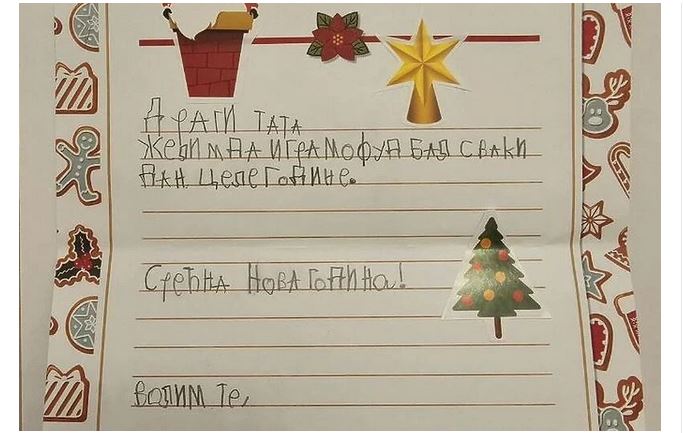 ДРАГИ ТАТА
ЖЕЉИМ ДА ИГРАМО ФУДБАЛ СВАКИ
ДАН. ЦЕЛЕ ГОДИНЕ.
СРЕЋНА НОВА ГОДИНА!
ВОЛИМ ТЕ,